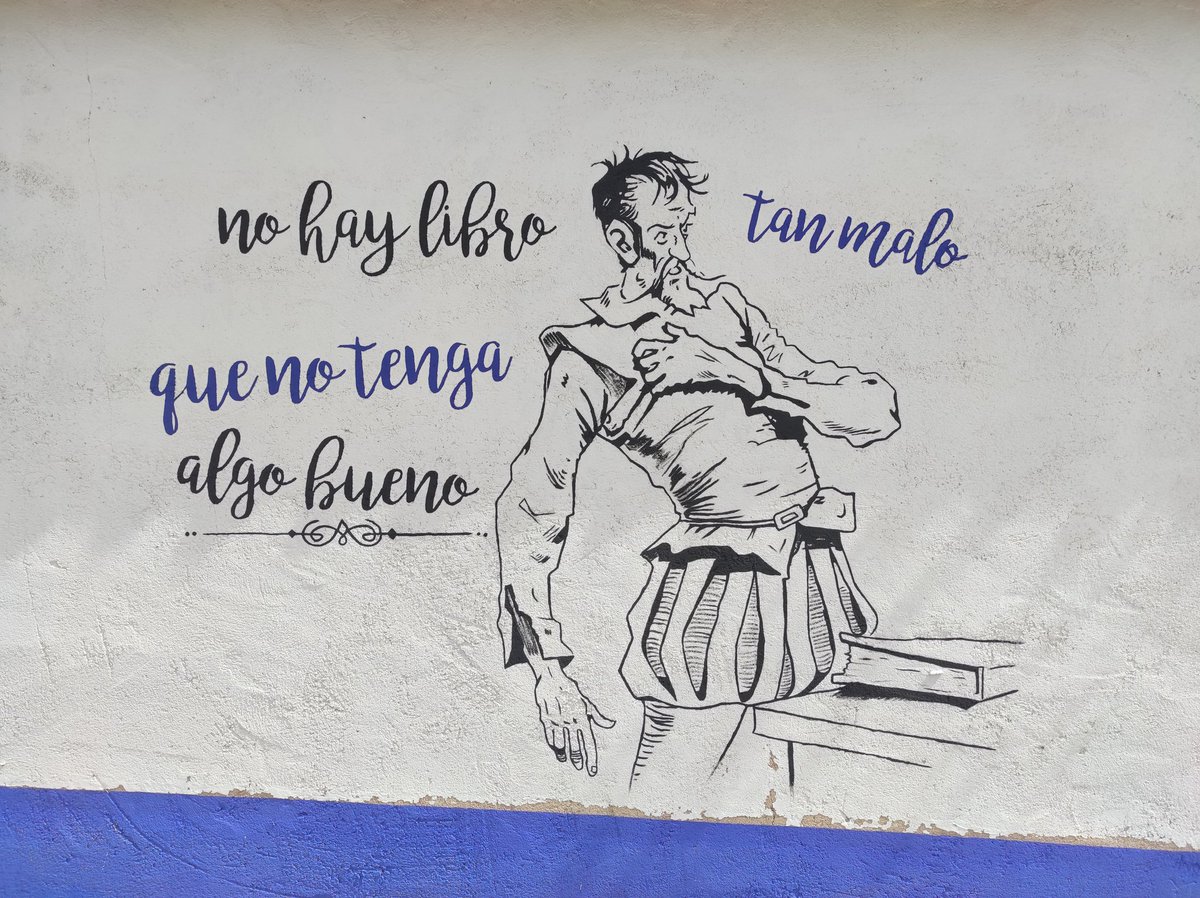 no hay libro tan malo
que no tenga
algo bueno